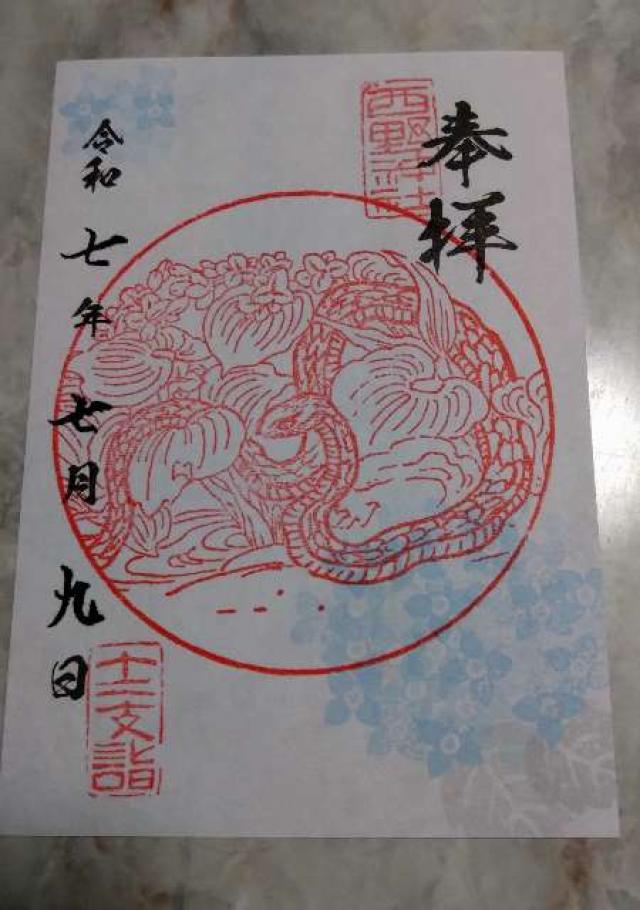 奉拝
西野神社
令和七年七月九日
十二支詣